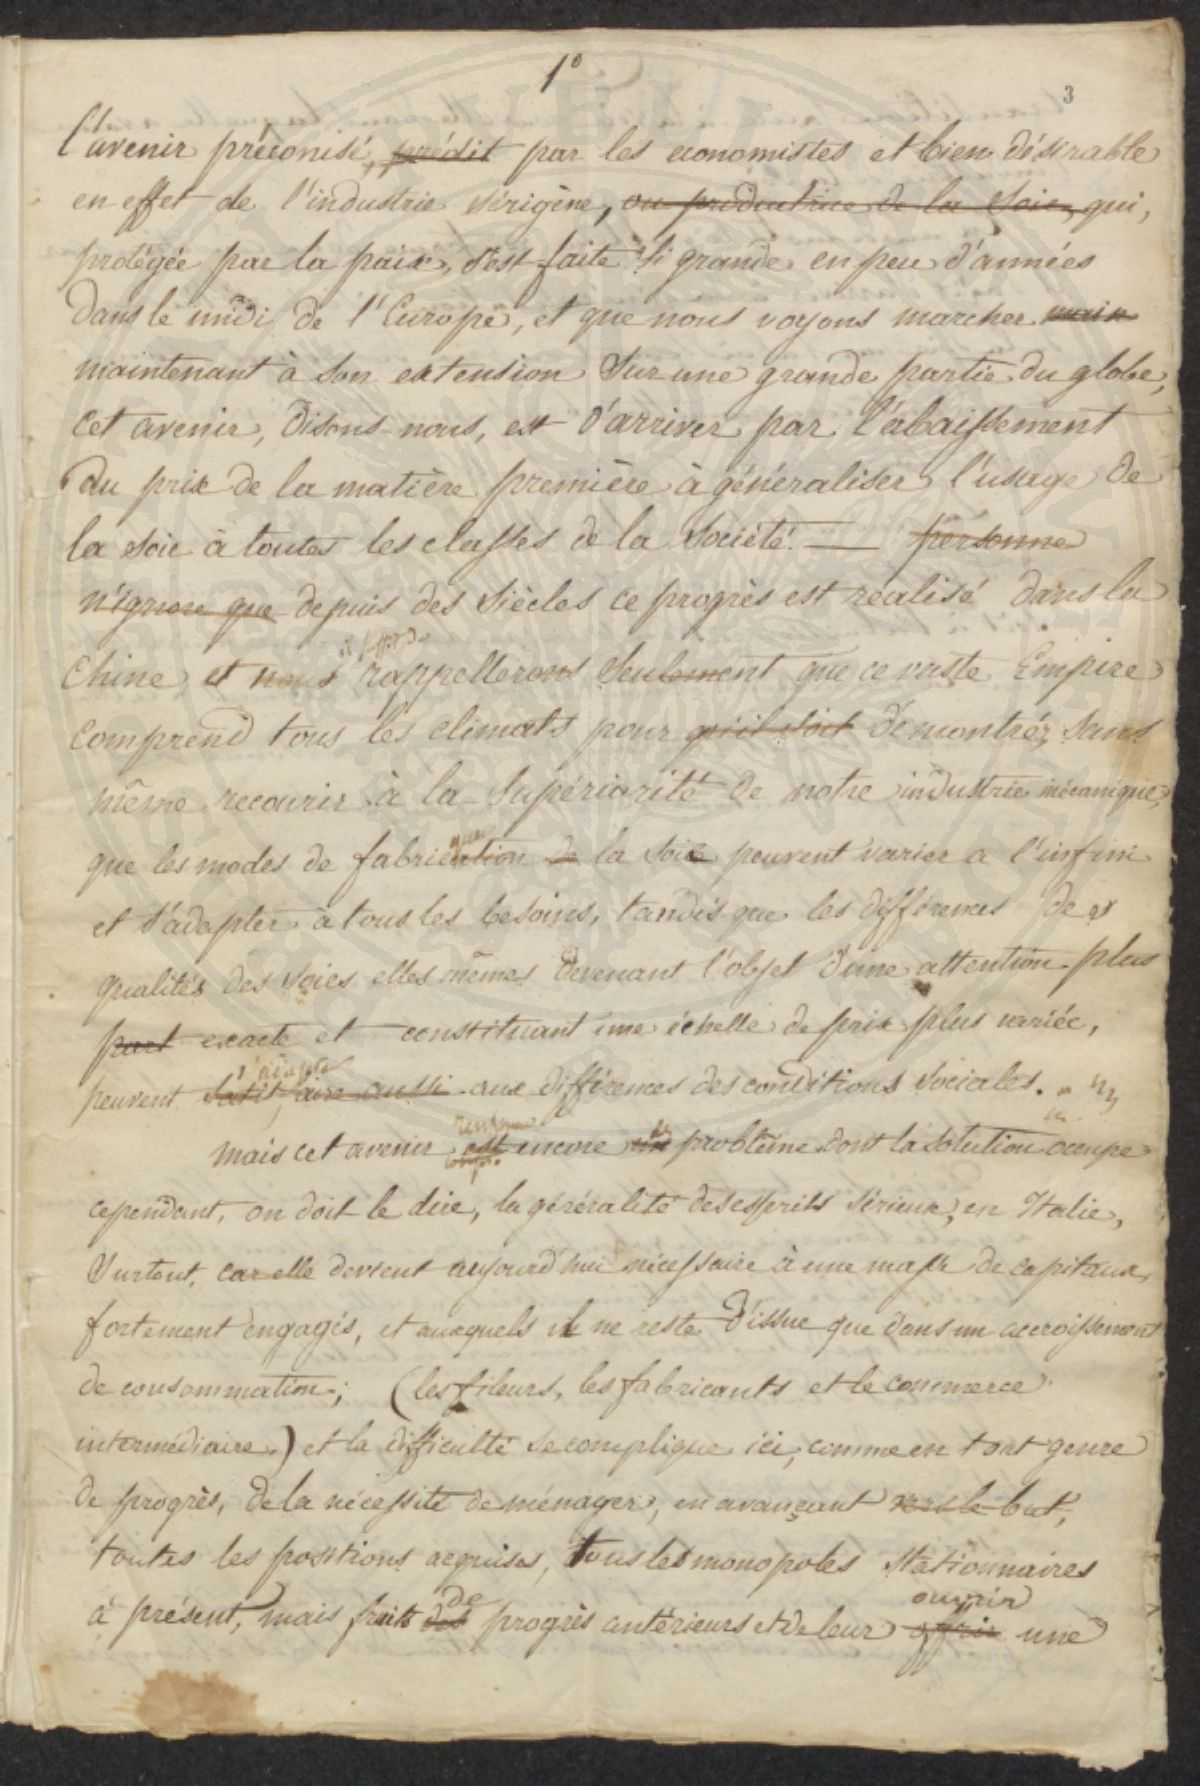 1°
3
L'avenir préconisé, prédit par les economistes et bien désirable
en effet de l'industrie sérigène, ou productrice de la Soie, qui,
protégée par la paix, s'est faite si grande en peu d'années
dans le midi de l'Europe, et que nous voyons marcher main
maintenant à son extension Sur une grande partie du globe,
cet avenir, disons nous, est d'arriver par l'abaissement
du prix de la matière première à généraliser l'usage de
la soie à toutes les classes de la Société. — personne
n'ignore que depuis des Siècles ce progrès est réalisé dans la
il suffit de
Chine et nous rappellerons Seulement que ce vaste Empire
comprend tous les climats pour qu'il soit démontrér Sans
même recourir à la Supériorité de notre industrie mécanique,
que
que les modes de fabrication de la soie peuvent varier a l'infini
et s'adapter à tous les besoins, tandis que les différences de
qualités des soies elles mêmes devenant l'objet d'une attention plus
part exacte et constituant une échelle de prix plus variée,
s'adapter
peuvent Satisfaire aussi aux différences des conditions Sociales.
renferme de
mais cet avenir est encore un problême dont la solution occupe
cependant, on doit le dire, la généralité des esprits sérieux, en Italie,
Surtout, car elle devient aujourd'hui nécessaire à une masse de capitaux
fortement engagés, et auxquels il ne reste d'issue que dans un accroissement
de consommation; (les fileurs, les fabricants et le commerce
intermédiaire.) et la difficulté se complique ici, comme en tout genre
de progrès, de la nécessité de ménager, en avançant vers le but,
toutes les positions acquises, tous les monopoles Stationnaires
de ouvrir
à présent, mais fruits des progrès antérieurs et de leur offrir une